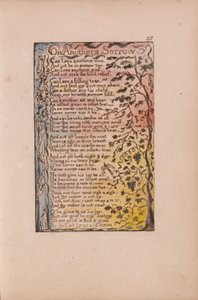 On Anothers Sorrow
Can I see anothers woe,
And not be in sorrow too.
Can I see anothers grief,
And not seek for kind relief.
Can I see a falling tear,
And not feel my sorrows share,
Can a father see his child,
Weep, nor be with sorrow fill'd.
Can a mother sit and hear,
An infant groan an infant fear
No no never can it be,
Never never can it be.
And can he who smiles on all
Hear the wren with sorrows small,
Hear the small birds grief & care
Hear the woes that infants bear
And not sit beside the nest
Pouring pity in their breast,
And not sit the cradle near
Weeping tear on infants tear.
And not sit both night & day,
Wiping all our tears away.
O! no never can it be.
Never never can it be.
He doth give his joy to all.
He becomes an infant small.
He becomes a man of woe
He doth feel the sorrow too.
Think not, thou canst sigh a sigh,
And thy maker is not by.
Think not, thou canst weep a tear,
And thy maker is not near.
O! he gives to us his joy,
That our grief he may destroy
Till our grief is fled & gone
He doth sit by us and moan